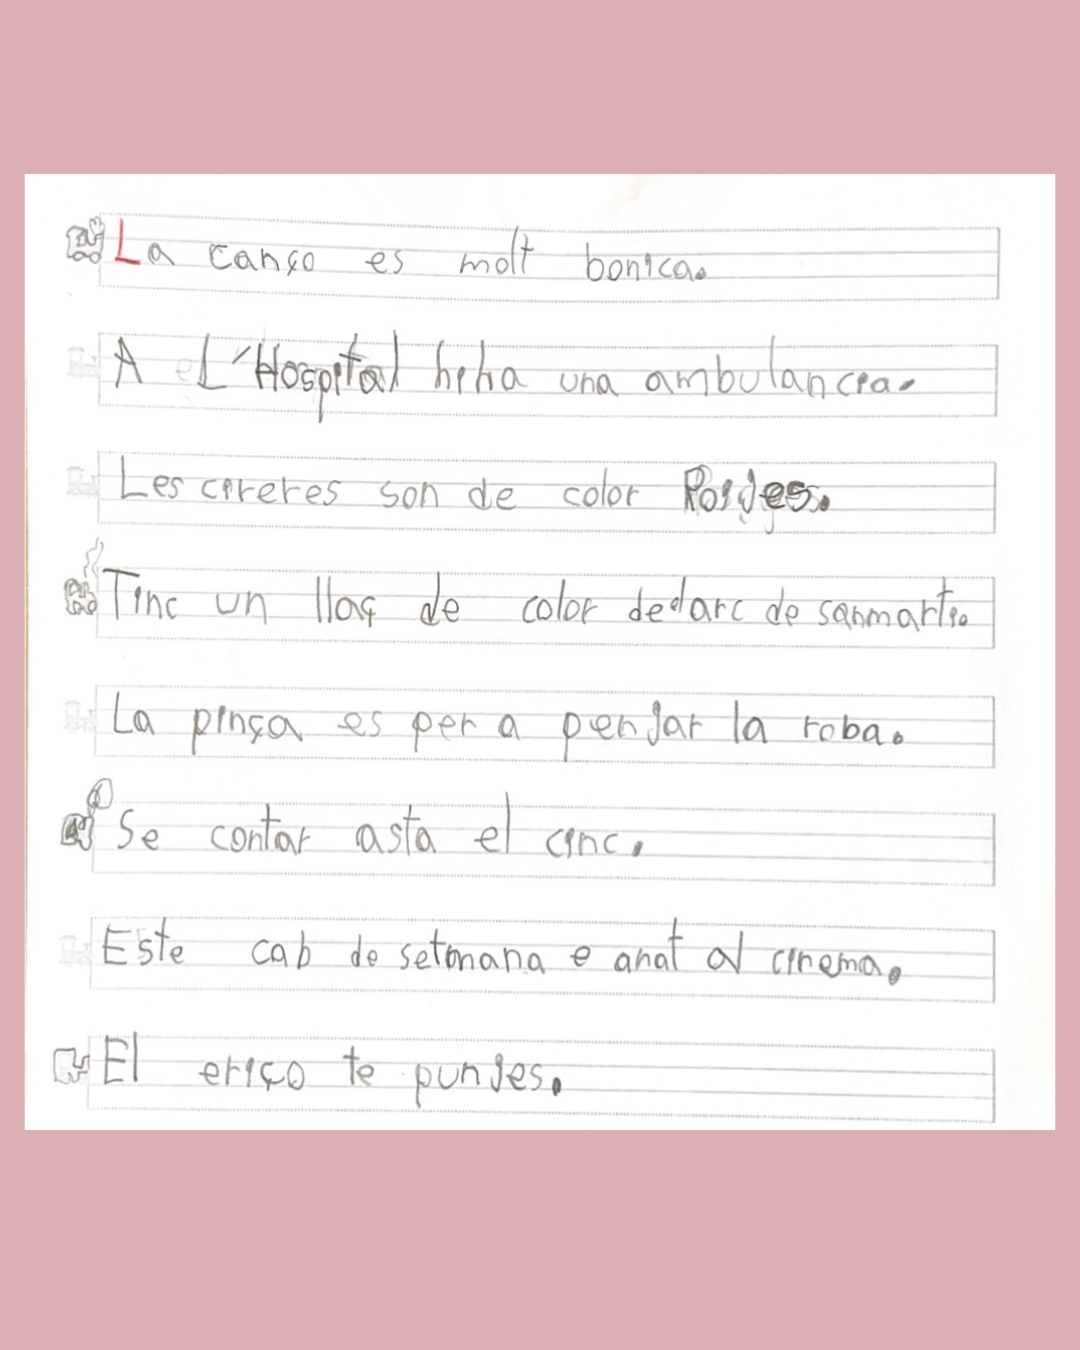 La canço es molt bonica.
A L'Hospital hiha una ambulancia.
Les cireres son de color
Tinc un llaç de color dedarc de sanmarti.
La pinça es per a penjar la roba.
Se contar asta el cinc.
Este cab de setmana e anat al cinema.
El eriço te punjes.